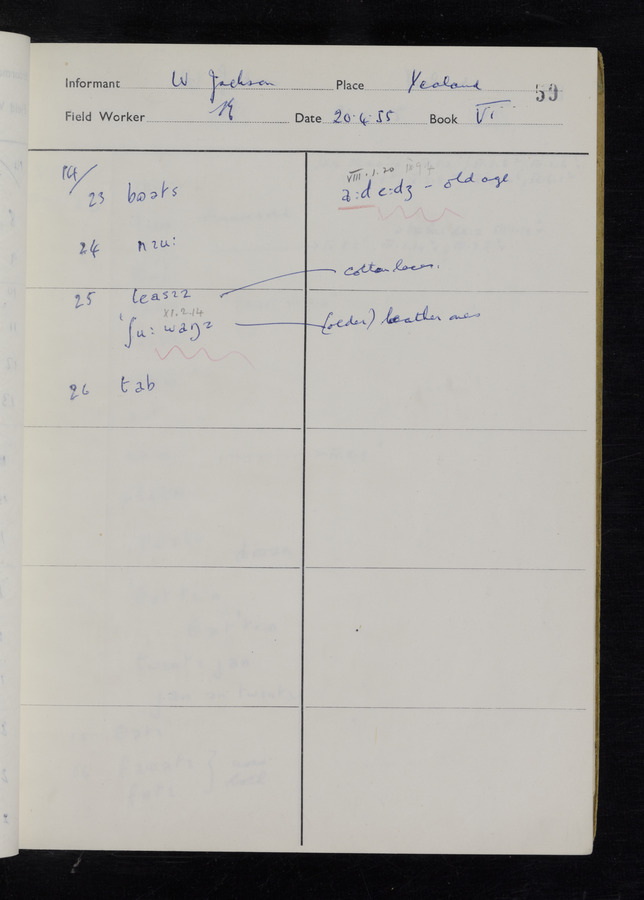 Informant W Jackson Place Yealand 59
Field Worker Date 20.4.55 Book VI
14/
23 bʊəts
VIII.1.20
a:d e:dʒ - old age
24 nɪu:
25 leəsɪz cotton laces.
XI.2.14
'ʃu: waŋz (older) leather ones
26 tab